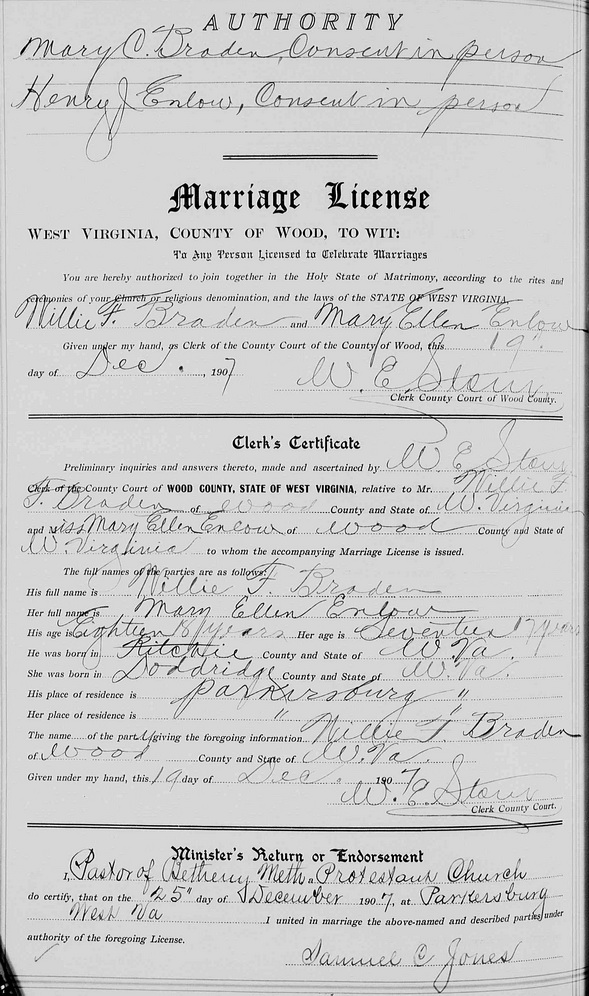 AUTHORITY
Mary C. Braden, Consent in person
Henry J Enlow, Consent in person
Marriage License
WEST VIRGINIA, COUNTY OF WOOD, TO WIT:
To Any Person Licensed to Celebrate Marriages
You are hereby authorized to join together in the Holy State of Matrimony, according to the rites and
ceremonies of your Church or religious denomination, and the laws of the STATE OF WEST VIRGINIA,
Willie F. Braden and Mary Ellen Enlow
Given under my hand, as Clerk of the County Court of the County of Wood, this 19"
day of Dec., 1907
W. E. Stout
Clerk County Court of Wood County.
Clerk's Certificate
Preliminary inquiries and answers thereto, made and ascertained by W. E. Stout
Clerk of the County Court of WOOD COUNTY, STATE OF WEST VIRGINIA, relative to Mr. Willie F
F. Braden of Wood County and State of W. Virginia
and Miss Mary Ellen Enlow of Wood County and State of
W. Virginia to whom the accompanying Marriage License is issued.
The full names of the parties are as follows:
His full name is Willie F. Braden
Her full name is Mary Ellen Enlow
His age is Eighteen 18 years Her age is Seventeen 17 years
He was born in Ritchie County and State of W. Va.
She was born in Doddridge County and State of W. Va.
His place of residence is Parkersburg "
Her place of residence is " "
The name of the party giving the foregoing information Willie F Braden
of Wood County and State of W. Va.
Given under my hand, this 19 day of Dec. 1907
W. E. Stout
Clerk County Court.
Minister's Return or Endorsement
I, Pastor of Betheny Meth. Protestant Church
do certify, that on the 25" day of December 1907, at Parkersburg
West Va I united in marriage the above-named and described parties under
authority of the foregoing License.
Samuel C Jones